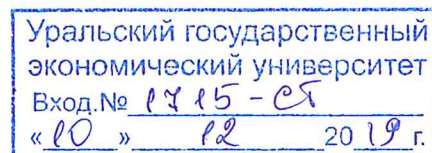 Уральский государственный
экономический университет
Вход.№ 1715-СТ
«10» 12 2019 г.